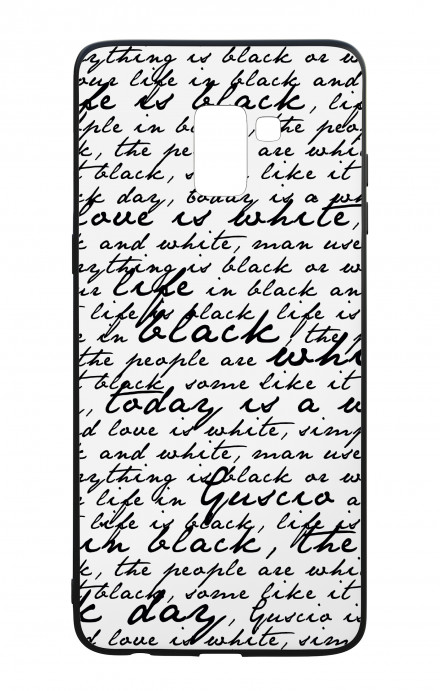 rything is black or w
our life in black and
fe is black, lif
ple in b the peo
k, the pe are whi
t black, s like it
ck day, today is a wh
love is white,
k and white, man use
rything is black or w
ur life in black an
t life is black life is
e in black, the p
the people are whi
t black, some like it
, today is a w
d love is white, simp
k and white, man use
rything is black or w
r life in Guscio a
t life is black, life is
in black, the
k, the people are whi
t black, some like it
k day, Guscio is
d love is white, sim